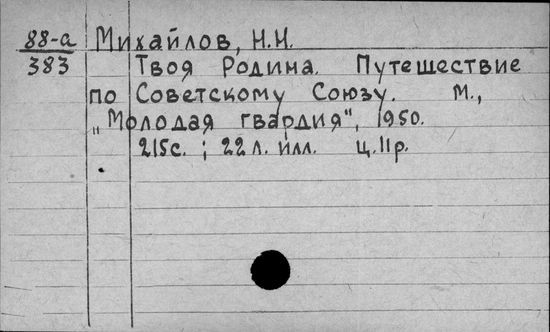 88-а Михайлов, Н.Н.
383 Твоя Родина. Путешествие
по Советскому Союзу. М.,
„Молодая гвардия", 1950.
215с. ; 22 л. илл. ц. 11р.